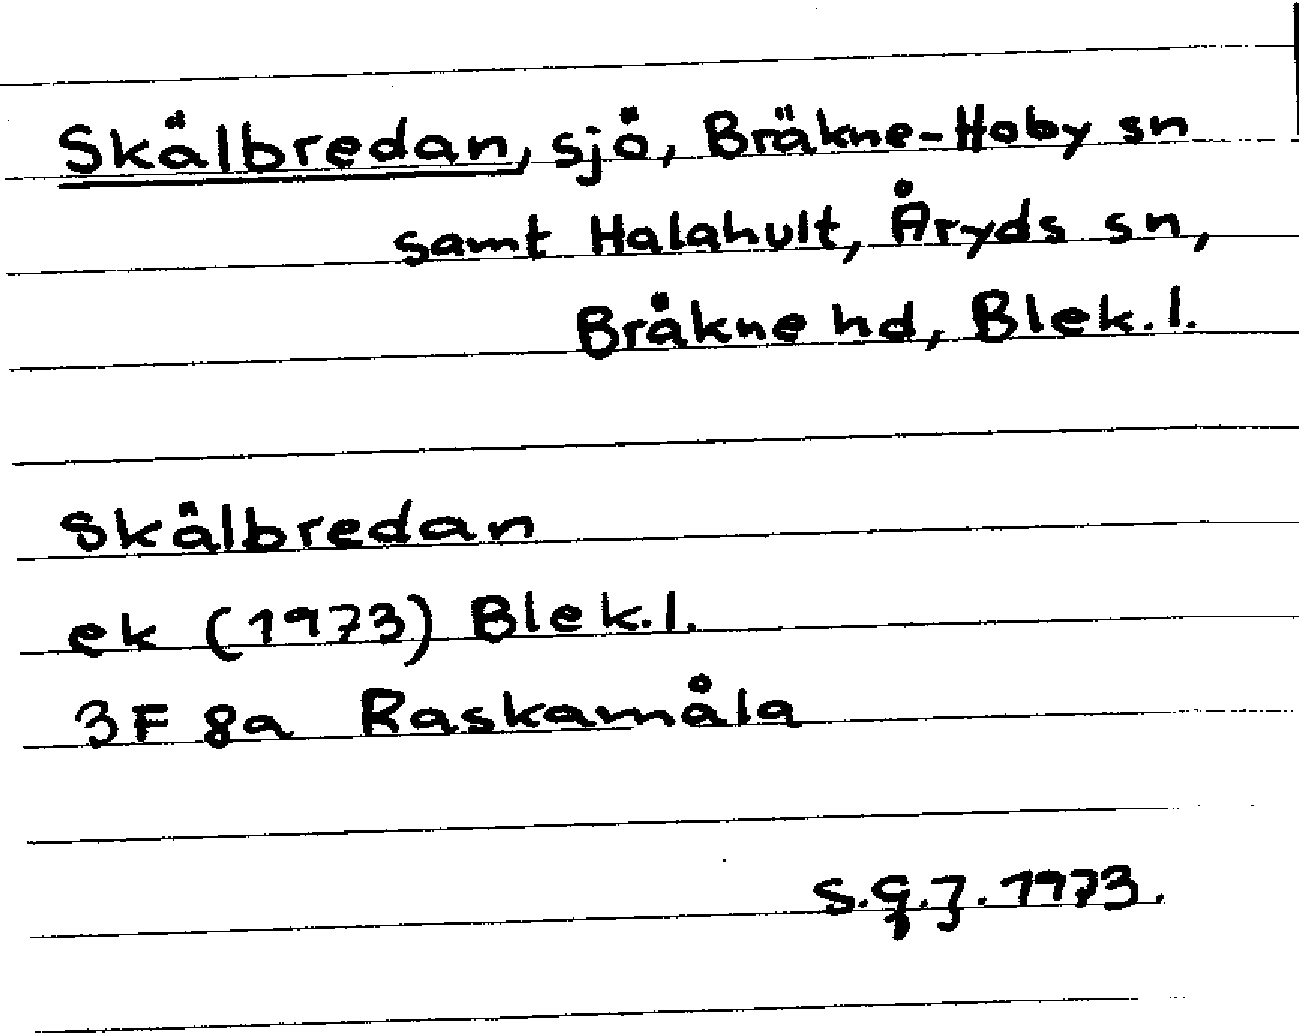 Skälbredan, sjö, Bräkne-Hoby sn
samt Halahult, Åryds sn,
Bräkne hd, Blek.l.
Skälbredan
ek (1973) Blek.l.
3F 8a Raskamåla
S.G.J. 1973.